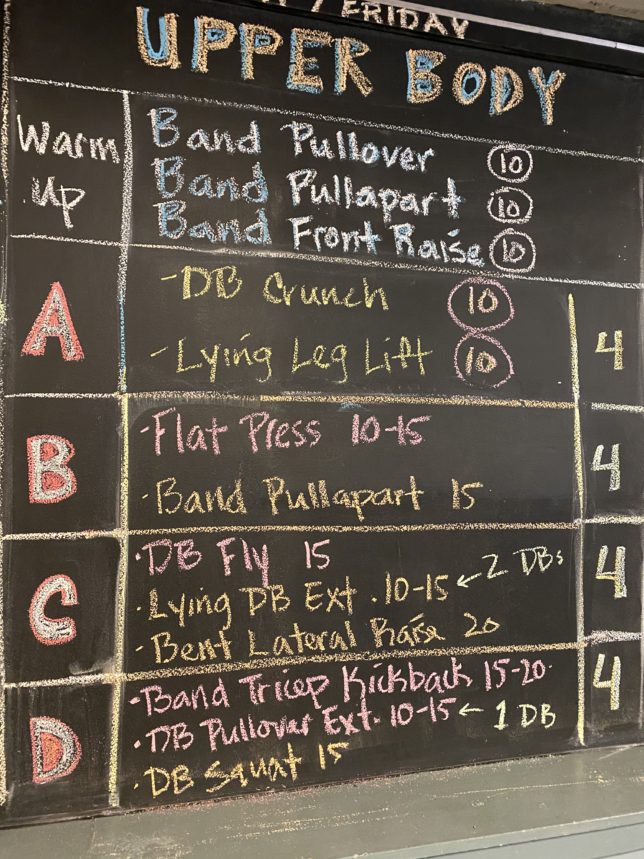 / FRIDAY
UPPER BODY
Warm Up
Band Pullover 10
Band Pullapart 10
Band Front Raise 10
A
-DB Crunch 10
-Lying Leg Lift 10
4
B
·Flat Press 10-15
·Band Pullapart 15
4
C
·DB Fly 15
·Lying DB Ext. 10-15 ← 2 DBs
·Bent Lateral Raise 20
4
D
·Band Tricep Kickback 15-20
·DB Pullover Ext. 10-15 ← 1 DB
·DB Squat 15
4